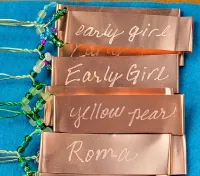 early girl
Early Girl
yellow pear
Roma